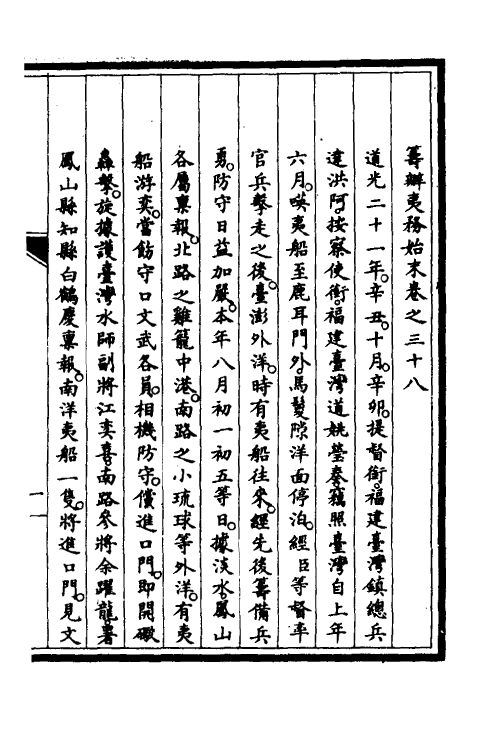 籌辦夷務始末卷之三十八
道光二十一年。辛丑。十月。辛卯。提督銜。福建臺灣鎮總兵
達洪阿。按察使銜。福建臺灣道姚瑩奏。竊照臺灣自上年
六月。㗸夷船至鹿耳門外。馬鬃隙洋面停泊。經臣等督率
官兵擊走之後。臺澎外洋。時有夷船往來。經先後籌備兵
勇。防守日益加嚴。本年八月初一初五等日。據淡水。鳳山
各屬稟報。北路之雞籠中港。南路之小琉球等外洋。有夷
船游奕。當飭守口文武各員。相機防守。儻進口門。即開礮
轟擊。旋據護臺灣水師副將江奕喜。南路參將余躍龍。署
鳳山縣知縣白鶴慶稟報。南洋夷船一隻。將進口門。見文
一一